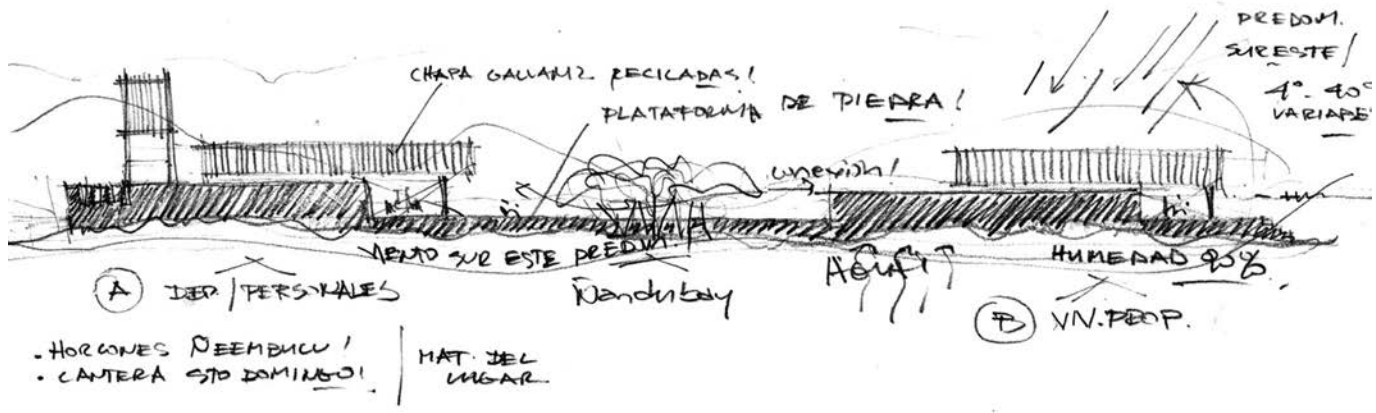 PREDOM.
SURESTE!
4° - 40°
VARIABE
CHAPA GALVANIZ RECILADAS!
PLATAFORMA DE PIEDRA!
conexión!
VIENTO SUR ESTE PREDM.
AGUA!
HUMEDAD 90%
Ñandubay
A DEP./PERSONALES
B VIV. PROP.
• HORCONES ÑEEMBUCU!
• CANTERA STO DOMINGO!
MAT. DEL
LUGAR